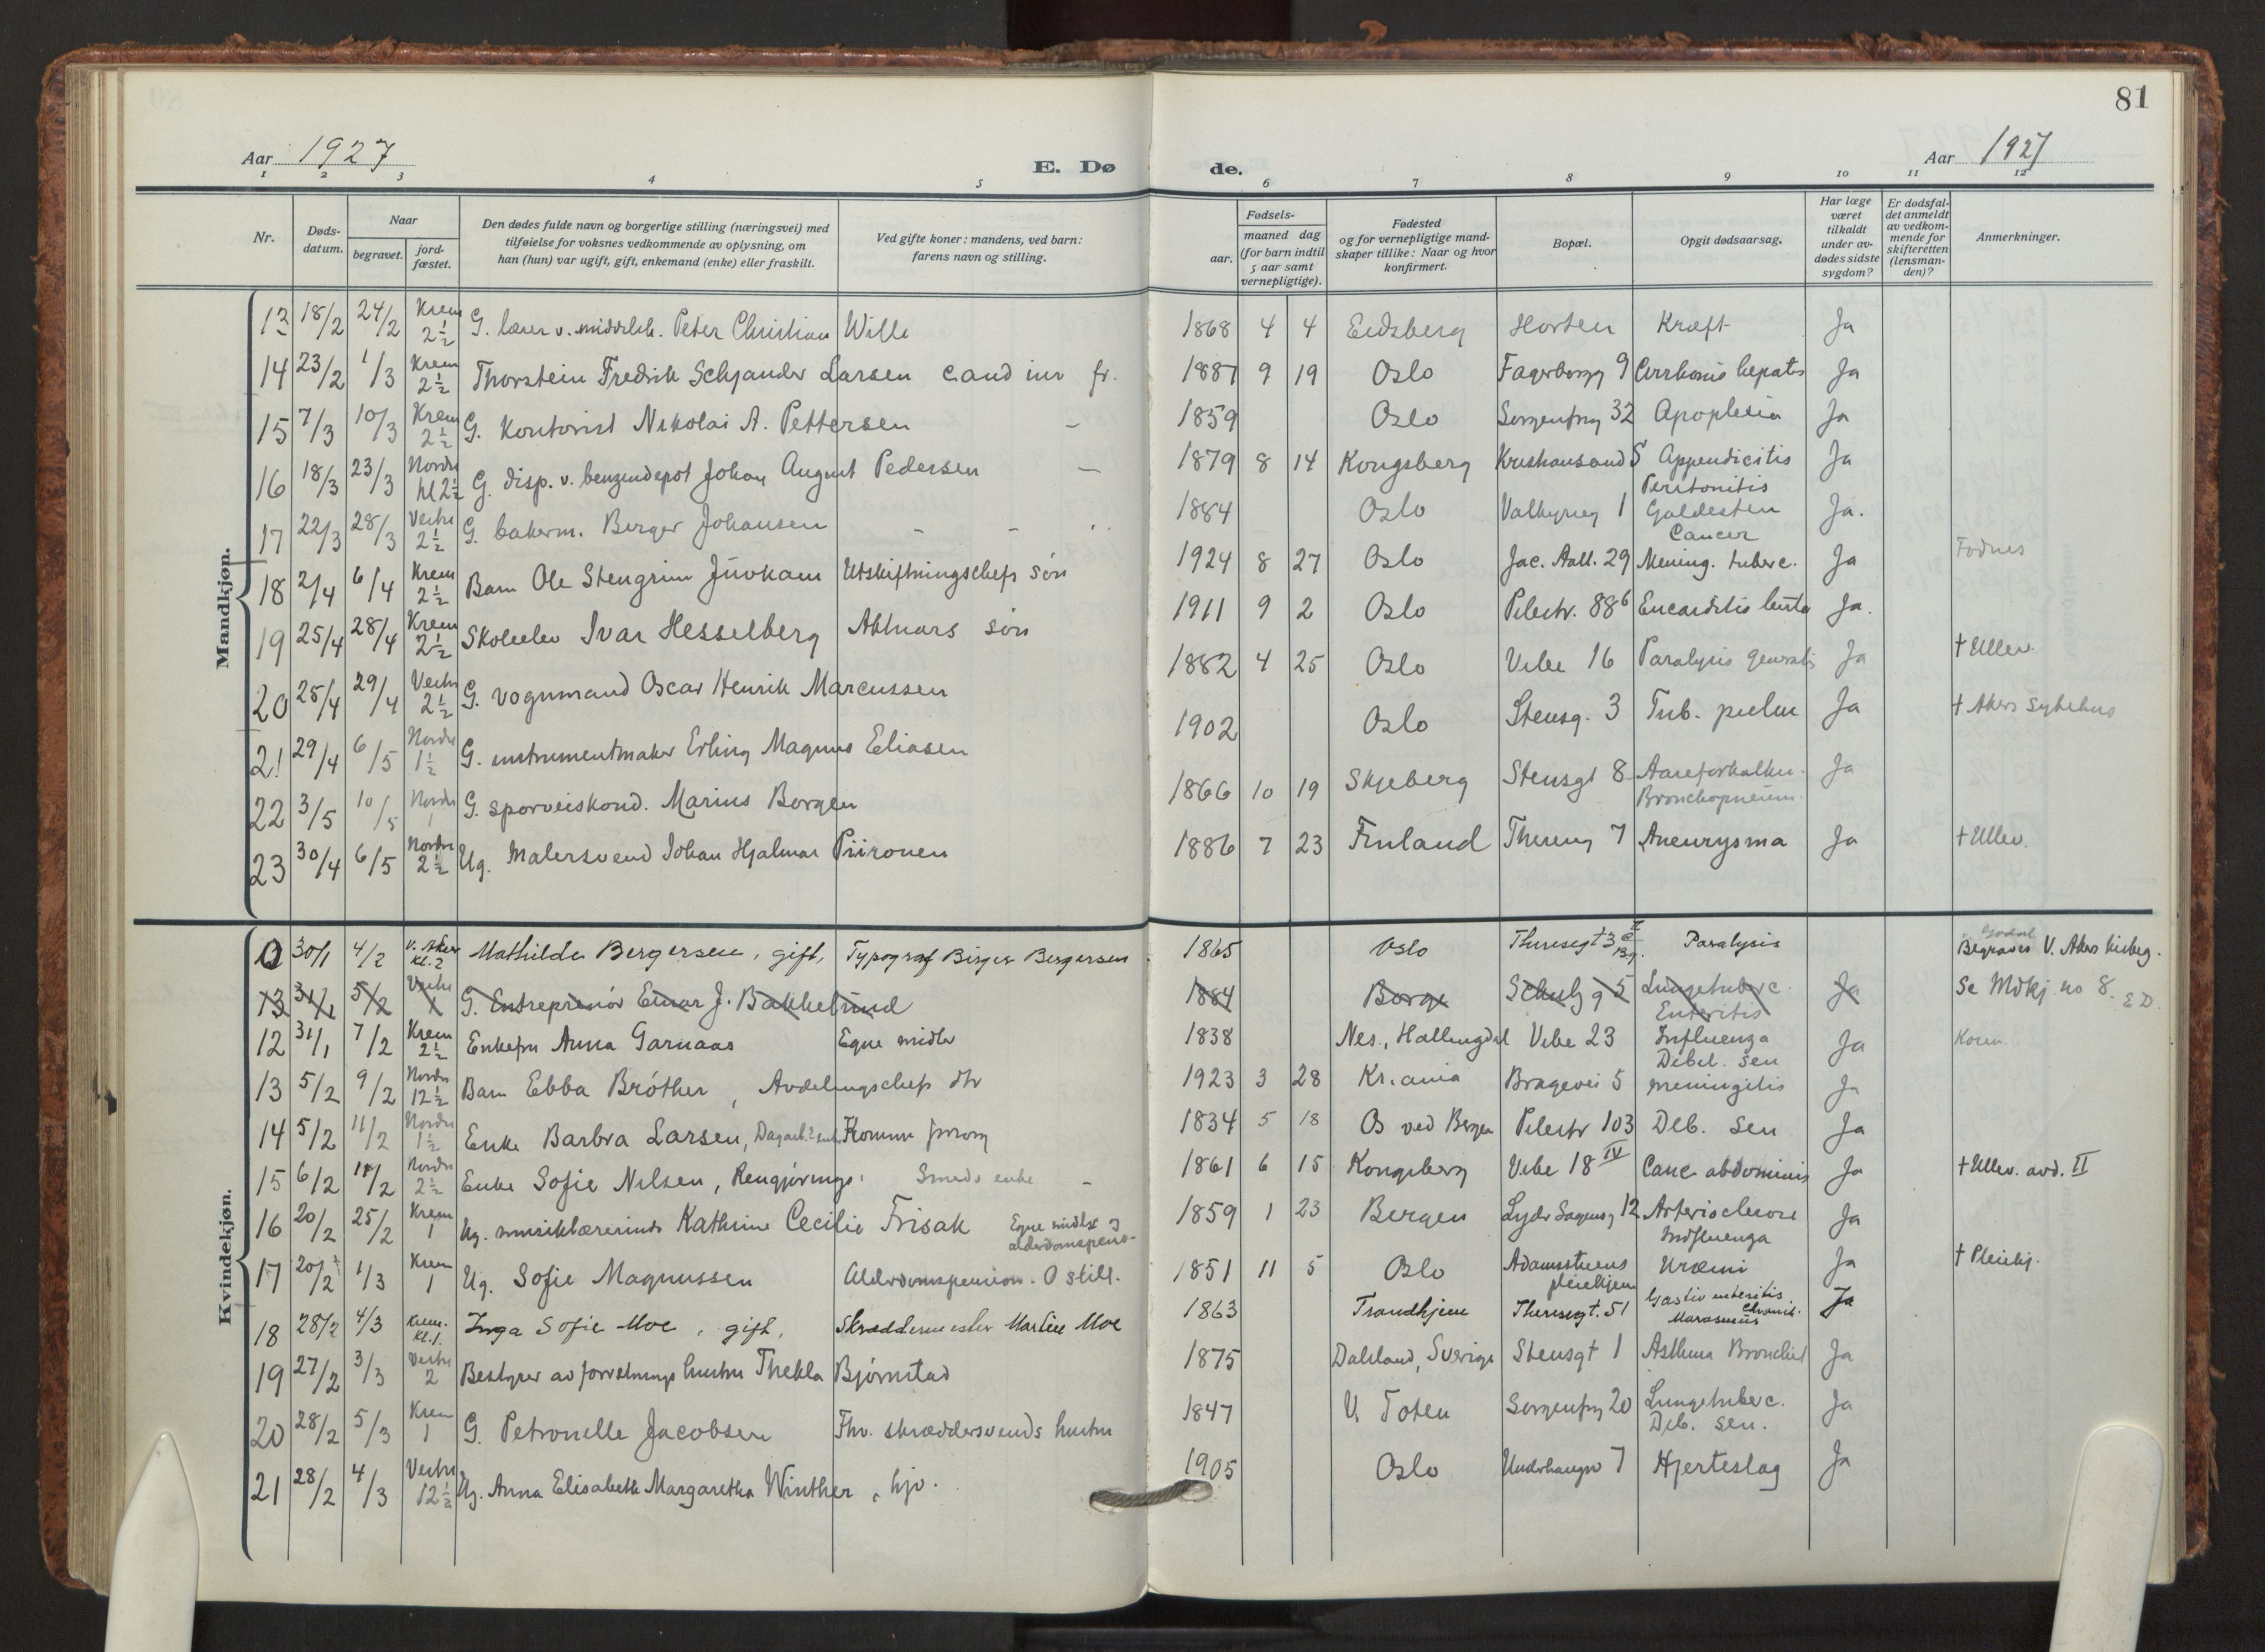 81
Aar 1927
E. Dø de.
Aar 1927
1 2 3 4 5 6 7 8 9 10 11 12
Nr.
Døds-datum.
Naar
begravet.
jord-fæstet.
Den dødes fulde navn og borgerlige stilling (næringsvei) med
tilføielse for voksnes vedkommende av oplysning, om
han (hun) var ugift, gift, enkemand (enke) eller fraskilt.
Ved gifte koner: mandens, ved barn:
farens navn og stilling.
Fødsels-
aar.
maaned dag
(for barn indtil
5 aar samt
vernepligtige).
Fødested
og for vernepligtige mand-
skaper tillike: Naar og hvor
konfirmert.
Bopæl.
Opgit dødsaarsag.
Har læge
været
tilkaldt
under av-
dødes sidste
sygdom?
Er dødsfal-
det anmeldt
av vedkom-
mende for
skifteretten
(lensman-
den)?
Anmerkninger.
Mandkjøn.
13 18/2 24/2 Krem 2½ G. lærer v. middelsk. Peter Christian Wille 1868 4 4 Eidsberg Horten Kræft Ja
14 23/2 1/3 Krem 2½ Thorstein Fredrik Schjander Larsen cand jur fr. 1887 9 19 Oslo Fagerborgg 9 Cirrhosis hepatis Ja
15 7/3 10/3 Krem 2½ G. Kontorist Nikolai A. Pettersen - 1859 Oslo Sorgenfrig 32 Apoplexia Ja
16 18/3 23/3 Nordre kl 2½ G. disp. v. benzindepot Johan August Pedersen - 1879 8 14 Kongsberg Kristiansand S Appendicitis Peritonitis Ja
17 22/3 28/3 Vestre 2½ G. bakerm. Berger Johansen - - 1884 Oslo Valkyrieg 1 Galdesten Cancer Ja.
18 2/4 6/4 Krem 2½ Barn Ole Stengrim Juvkam Utskiftningschefs søn 1924 8 27 Oslo Jac. Aall. 29 Mening. tuberc. Ja Fodnes
19 25/4 28/4 Krem 2½ Skoleelev Ivar Hesselberg Aktuars søn 1911 9 2 Oslo Pilestr. 88 b Encarditis lenta Ja.
20 25/4 29/4 Vestre 2½ G. vognmand Oscar Henrik Marcussen 1882 4 25 Oslo Vibe 16 Paralysis generalis Ja † Ullev.
21 29/4 6/5 Nordre 1½ G. instrumentmaker Erling Magnus Eliasen 1902 Oslo Stensg. 3 Tub. pulm Ja † Akers Sykehus
22 3/5 10/5 Nordre 1 G. sporveiskond. Marius Borgen 1866 10 19 Skjeberg Stensgt 8 Aareforkalkn. Bronchopneum. Ja
23 30/4 6/5 Nordre 2½ Ug. Malersvend Johan Hjalmar Piironen 1886 7 23 Finland Thereseg 7 Aneurysma Ja † Ullev.
Kvindekjøn.
30/1 4/2 V. Aker kl. 2 Mathilde Bergersen, gift, Typograf Birger Bergersen 1865 Oslo Theresegt 3 Paralysis Begraves V. Akers kirkeg.
13 31/1 5/2 Vestre 1 G. Entreprenör Einar J. Bakkelund 1884 Borge Schulz g 5 Lungetuberc. Enteritis Ja Se Mdkj no 8. ED.
12 31/1 7/2 Krem 2½ Enkefru Anna Garnaas Egne midler 1838 Nes, Hallingdal Vibe 23 Influenza Debil. sen Ja
13 5/2 9/2 Nordre 12½ Barn Ebba Bröther, Avdelingschefs dtr 1923 3 28 Kr.ania Bragevei 5 meningitis Ja
14 5/2 11/2 Nordre 1½ Enke Barbra Larsen, Dagarb. enke Kommun forsorg 1834 5 18 Os ved Bergen Pilestr 103 Deb. sen Ja
15 6/2 11/2 Nordre 2½ Enke Sofie Nilsen, Rengjørings. Smeds enke - 1861 6 15 Kongsberg Vibe 18 IV Canc abdominis Ja † Ullev. avd. II
16 20/2 25/2 Krem 1 Ug. musiklærerinde Kathrine Cecilie Frisak Egne midler og alderdomspens- 1859 1 23 Bergen Lyder Sagensg 12 Arteriosclerose Indfluenza Ja
17 20/2 1/3 Krem 1 Ug. Sofie Magnussen Alderdomspension. O still. 1851 11 5 Oslo Adamstuens pleiehjem Uræmi Ja † Pleiehj.
18 28/2 4/3 Krem. kl. 1. Inga Sofie Moe, gift, Skræddermester Martin Moe 1863 Trondhjem Theresegt. 51 Gastro enteritis chronic. Marasmus Ja
19 27/2 3/3 Vestre 2 Bestyrer av forretnings hustru Thekla Bjørnstad 1875 Dalsland, Sverige Stensgt 1 Asthma Bronchial Ja
20 28/2 5/3 Krem 1 G. Petronelle Jacobsen Fhv. skræddersvends hustru 1847 V. Toten Sorgenfrig 20 Lungetuberc. Deb. sen. Ja
21 28/2 4/3 Vestre 12½ Ug. Anna Elisabeth Margaretha Winther, hjv. 1905 Oslo Underhaugsv 7 Hjerteslag Ja